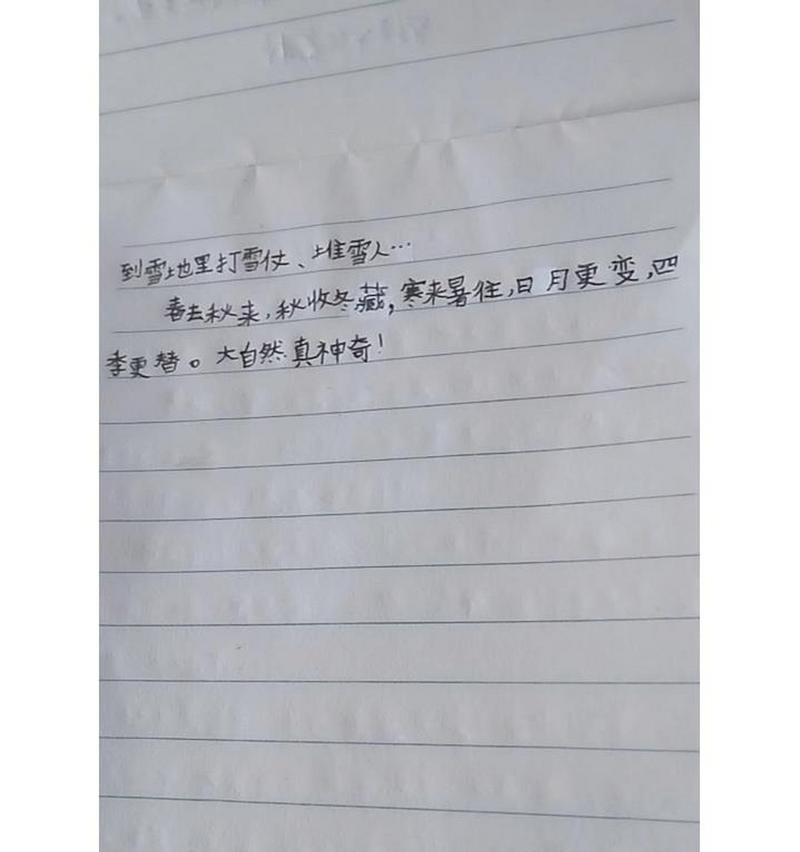 到雪地里打雪仗、堆雪人…
春去秋来,秋收冬藏,寒来暑往,日月更变,四
季更替。大自然真神奇!